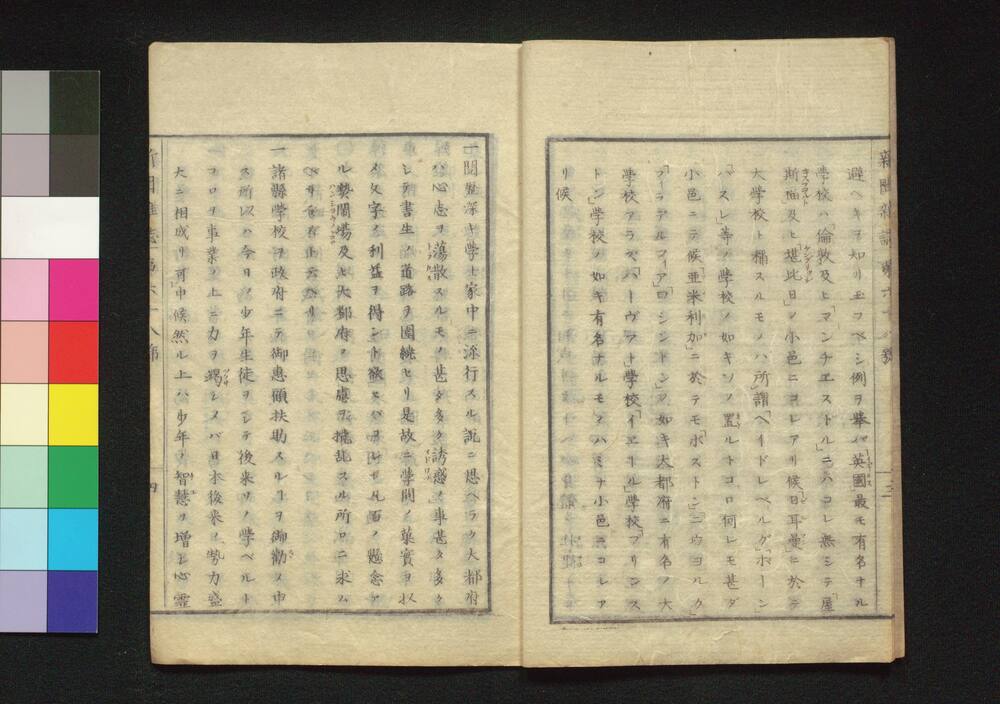 新聞雜誌 第六十八號
三
避ヘキヲ知リ玉フベシ例ヲ擧レハ英國最モ有名ナル
学校ハ「倫敦及ヒ「マンチエストル」ニハコレ無シテ「屋
斯福及ヒ「堪比日」ノ小邑ニコレアリ候日耳曼ニ於テ
大学校ト稱スルモノハ所謂「ヘイドレベルグ」「ボーン」
「ハスレ」等ノ學校ノ如キソノ置ルトコロ何レモ甚ダ
小邑ニテ候「亞米利加」ニ於テモ「ボストン」「ニウヨルク」
「フィラデルフィア」「ワシントン」ノ如キ大都府ニ有名ノ大
學校アラズ「ハーヴアト」學校「イエール」學校「プリンス
トン」学校ノ如キ有名ナルモノハミナ小邑ニコレア
リ候
一聞覧深キ學士家中ニ流行スル説ニ想ヘラク大都府
ハ心志ヲ蕩散スルモノ甚タ多ク誘惑ノ事甚タ多ク
シテ書生ノ道路ヲ圍繞セリ是故ニ學問ノ菓實ヲ以
テ文字ノ利益ヲ得ント欲スレバ
ル勢閙場及ヒ大都府ノ思慮ヲ擾乱スル所ロニ求ム
ベカラズ
一諸縣学校ヲ政府ニテ御惠顧扶助スルヿヲ御勸メ申
ス所以ハ今日ノ少年生徒ヲシテ後来ソノ學ベルト
コロヲ事業ノ上ニ力ヲ竭サシメバ日本後来ノ勢力盛
大ニ相成リ可申候然ル上ハ少年ノ智慧ヲ增シ心霊
四